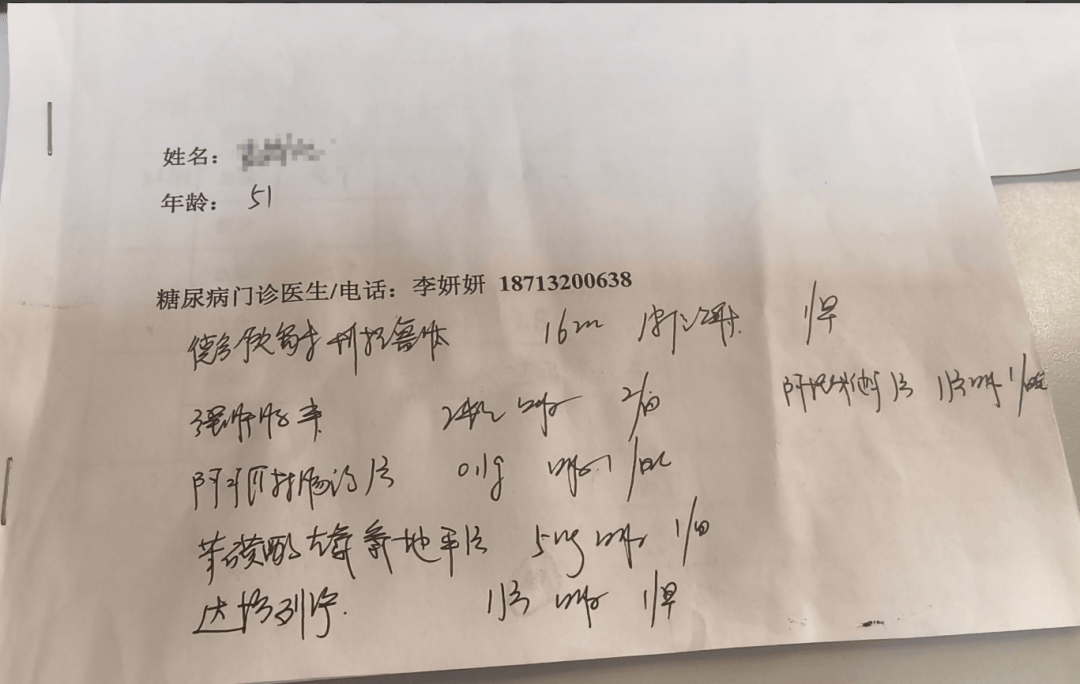 姓名：
年龄： 51
糖尿病门诊医生/电话：李妍妍 18713200638
德谷胰岛素利拉鲁肽 16u 皮下注射 1/早
阿托伐他汀片 1片 口服 1/晚
口服 2/日
阿司匹林肠溶片 0.1g 口服 1/晚
苯磺酸左氨氯地平片 5mg 口服 1/日
达格列净 1片 口服 1/早